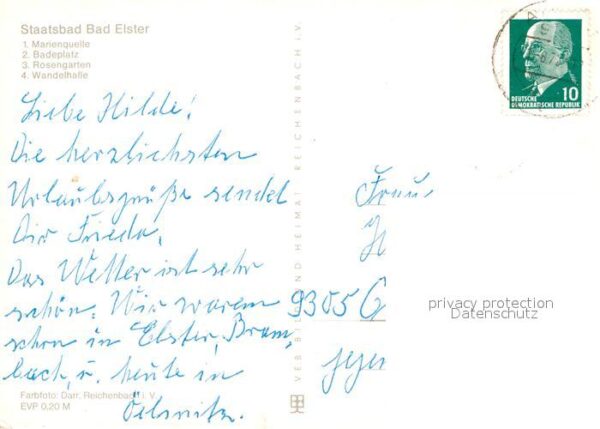 Staatsbad Bad Elster
1. Marienquelle
2. Badeplatz
3. Rosengarten
4. Wandelhalle
Liebe Hilde!
Die herzlichsten
Urlaubsgrüße sendet
Dir Frieda.
Das Wetter ist sehr
schön. Wir waren
schon in Elster, Bram,
bach, u. heute in
Oelsnitz.
Farbfoto: Darr, Reichenbach i. V.
EVP 0,20 M
VEB BILD UND HEIMAT REICHENBACH I. V.
10
DEUTSCHE
DEMOKRATISCHE REPUBLIK
Frau
H
9305 G
privacy protection
Datenschutz